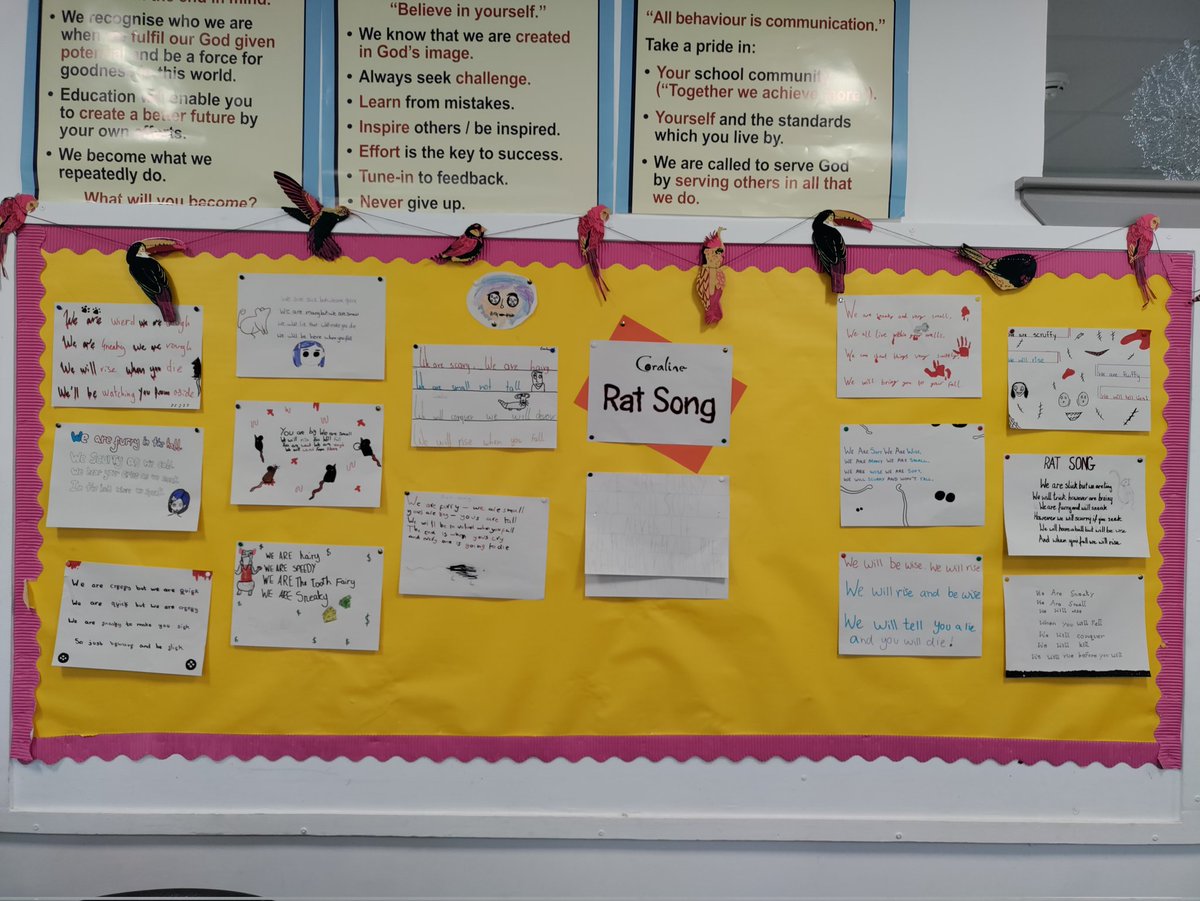 the end in mind.
• We recognise who we are
when we fulfil our God given
potential and be a force for
goodness in this world.
• Education will enable you
to create a better future by
your own efforts.
• We become what we
repeatedly do.
What will you become?
“Believe in yourself.”
• We know that we are created
in God’s image.
• Always seek challenge.
• Learn from mistakes.
• Inspire others / be inspired.
• Effort is the key to success.
• Tune-in to feedback.
• Never give up.
“All behaviour is communication.”
Take a pride in:
• Your school community
(“Together we achieve more”).
• Yourself and the standards
which you live by.
• We are called to serve God
by serving others in all that
we do.
We are wierd we are tough
We are sneaky we are rough
We will rise when you die
We'll be watching you from aside
We are furry in the hall
We scurry as we call
We hear your cries as we
In the
We are creeps but we are quick
We are quick but we are creepy
We are sneaky to make you sick
So just and be slick.
We are slick but
We are many but we are small
we will lie that will make you die
we will be here when you fall
You are big we are small
We will rise you will fall
WE ARE hairy
WE ARE SPEEDY
WE ARE The tooth Fairy
WE ARE Sneaky
We are scary. We are hairy
We are small not tall
We will conquer we will
We will rise when you fall
We are furry – we are small
yous are big – yous are tall
We will be when you fall
The end is you cry
and only one is going to die
Coraline
Rat Song
We are and very small,
We all live your walls.
We can
We will bring you to your fall.
We Are Soft We Are Wise,
We Are Many We Are Small.
We are wise we are soft,
We will scurry and won't fall.
We will be wise. We will rise
We will rise and be wise
We will tell you a lie
and you will die!
We are scruffy
We will rise
We are fluffy
RAT SONG
We are slick but we are tiny
We will trick however are brainy
We are furry and will sneak
However we will scurry if you seek
We will have a ball but will be wise
And when you fall we will rise.
We Are Sneaky
We Are Small
We will
When you will fall
We will conquer
We will kill
We will rise before you will